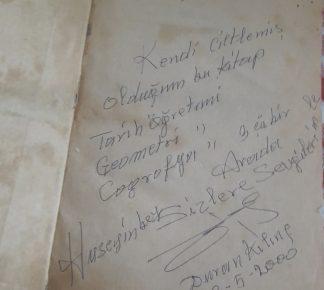 Kendi Ciltlemiş
olduğum bu kitap
Tarih öğretimi
Geometri "
Coğrafya " 3 cü bir
Arada
Hüseyinbek Sizlere Sevgilerimle
Duran Kılınç
-5-2000